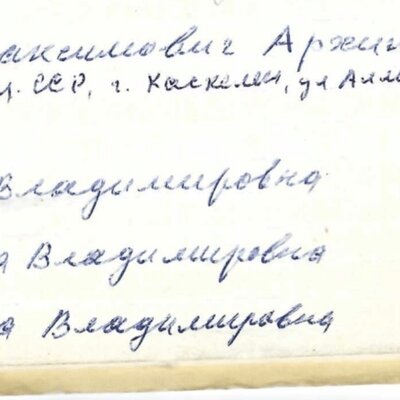 аксимович Архи
ССР, г. Каскелен, ул Алма
Владимировна
а Владимировна
а Владимировна